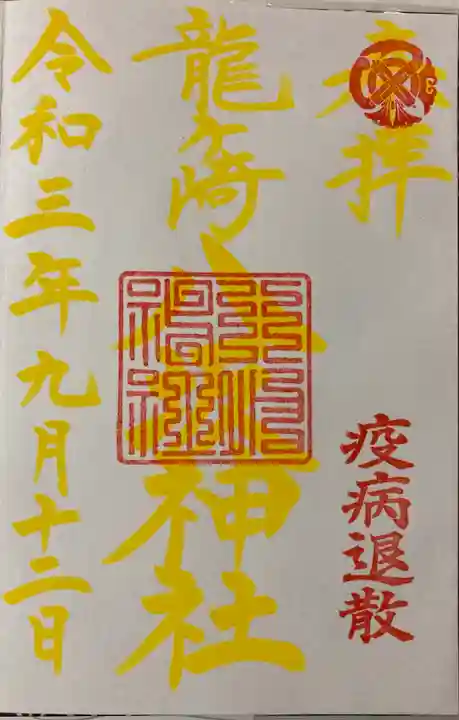 奉拝
疫病退散
龍ヶ崎
神社
令和三年九月十二日